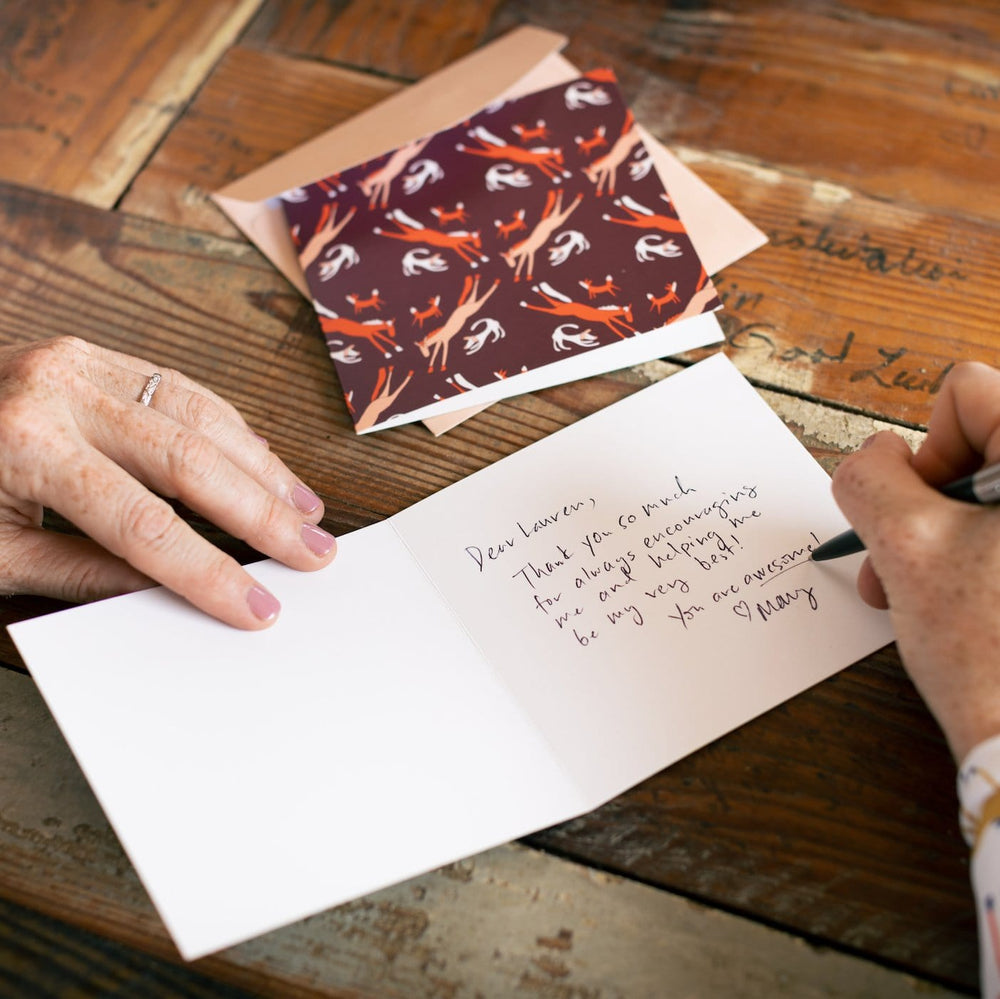 Dear Lauren,
Thank you so much
for always encouraging
me and helping me
be my very best!
You are awesome!
♡ Mary
in
Good